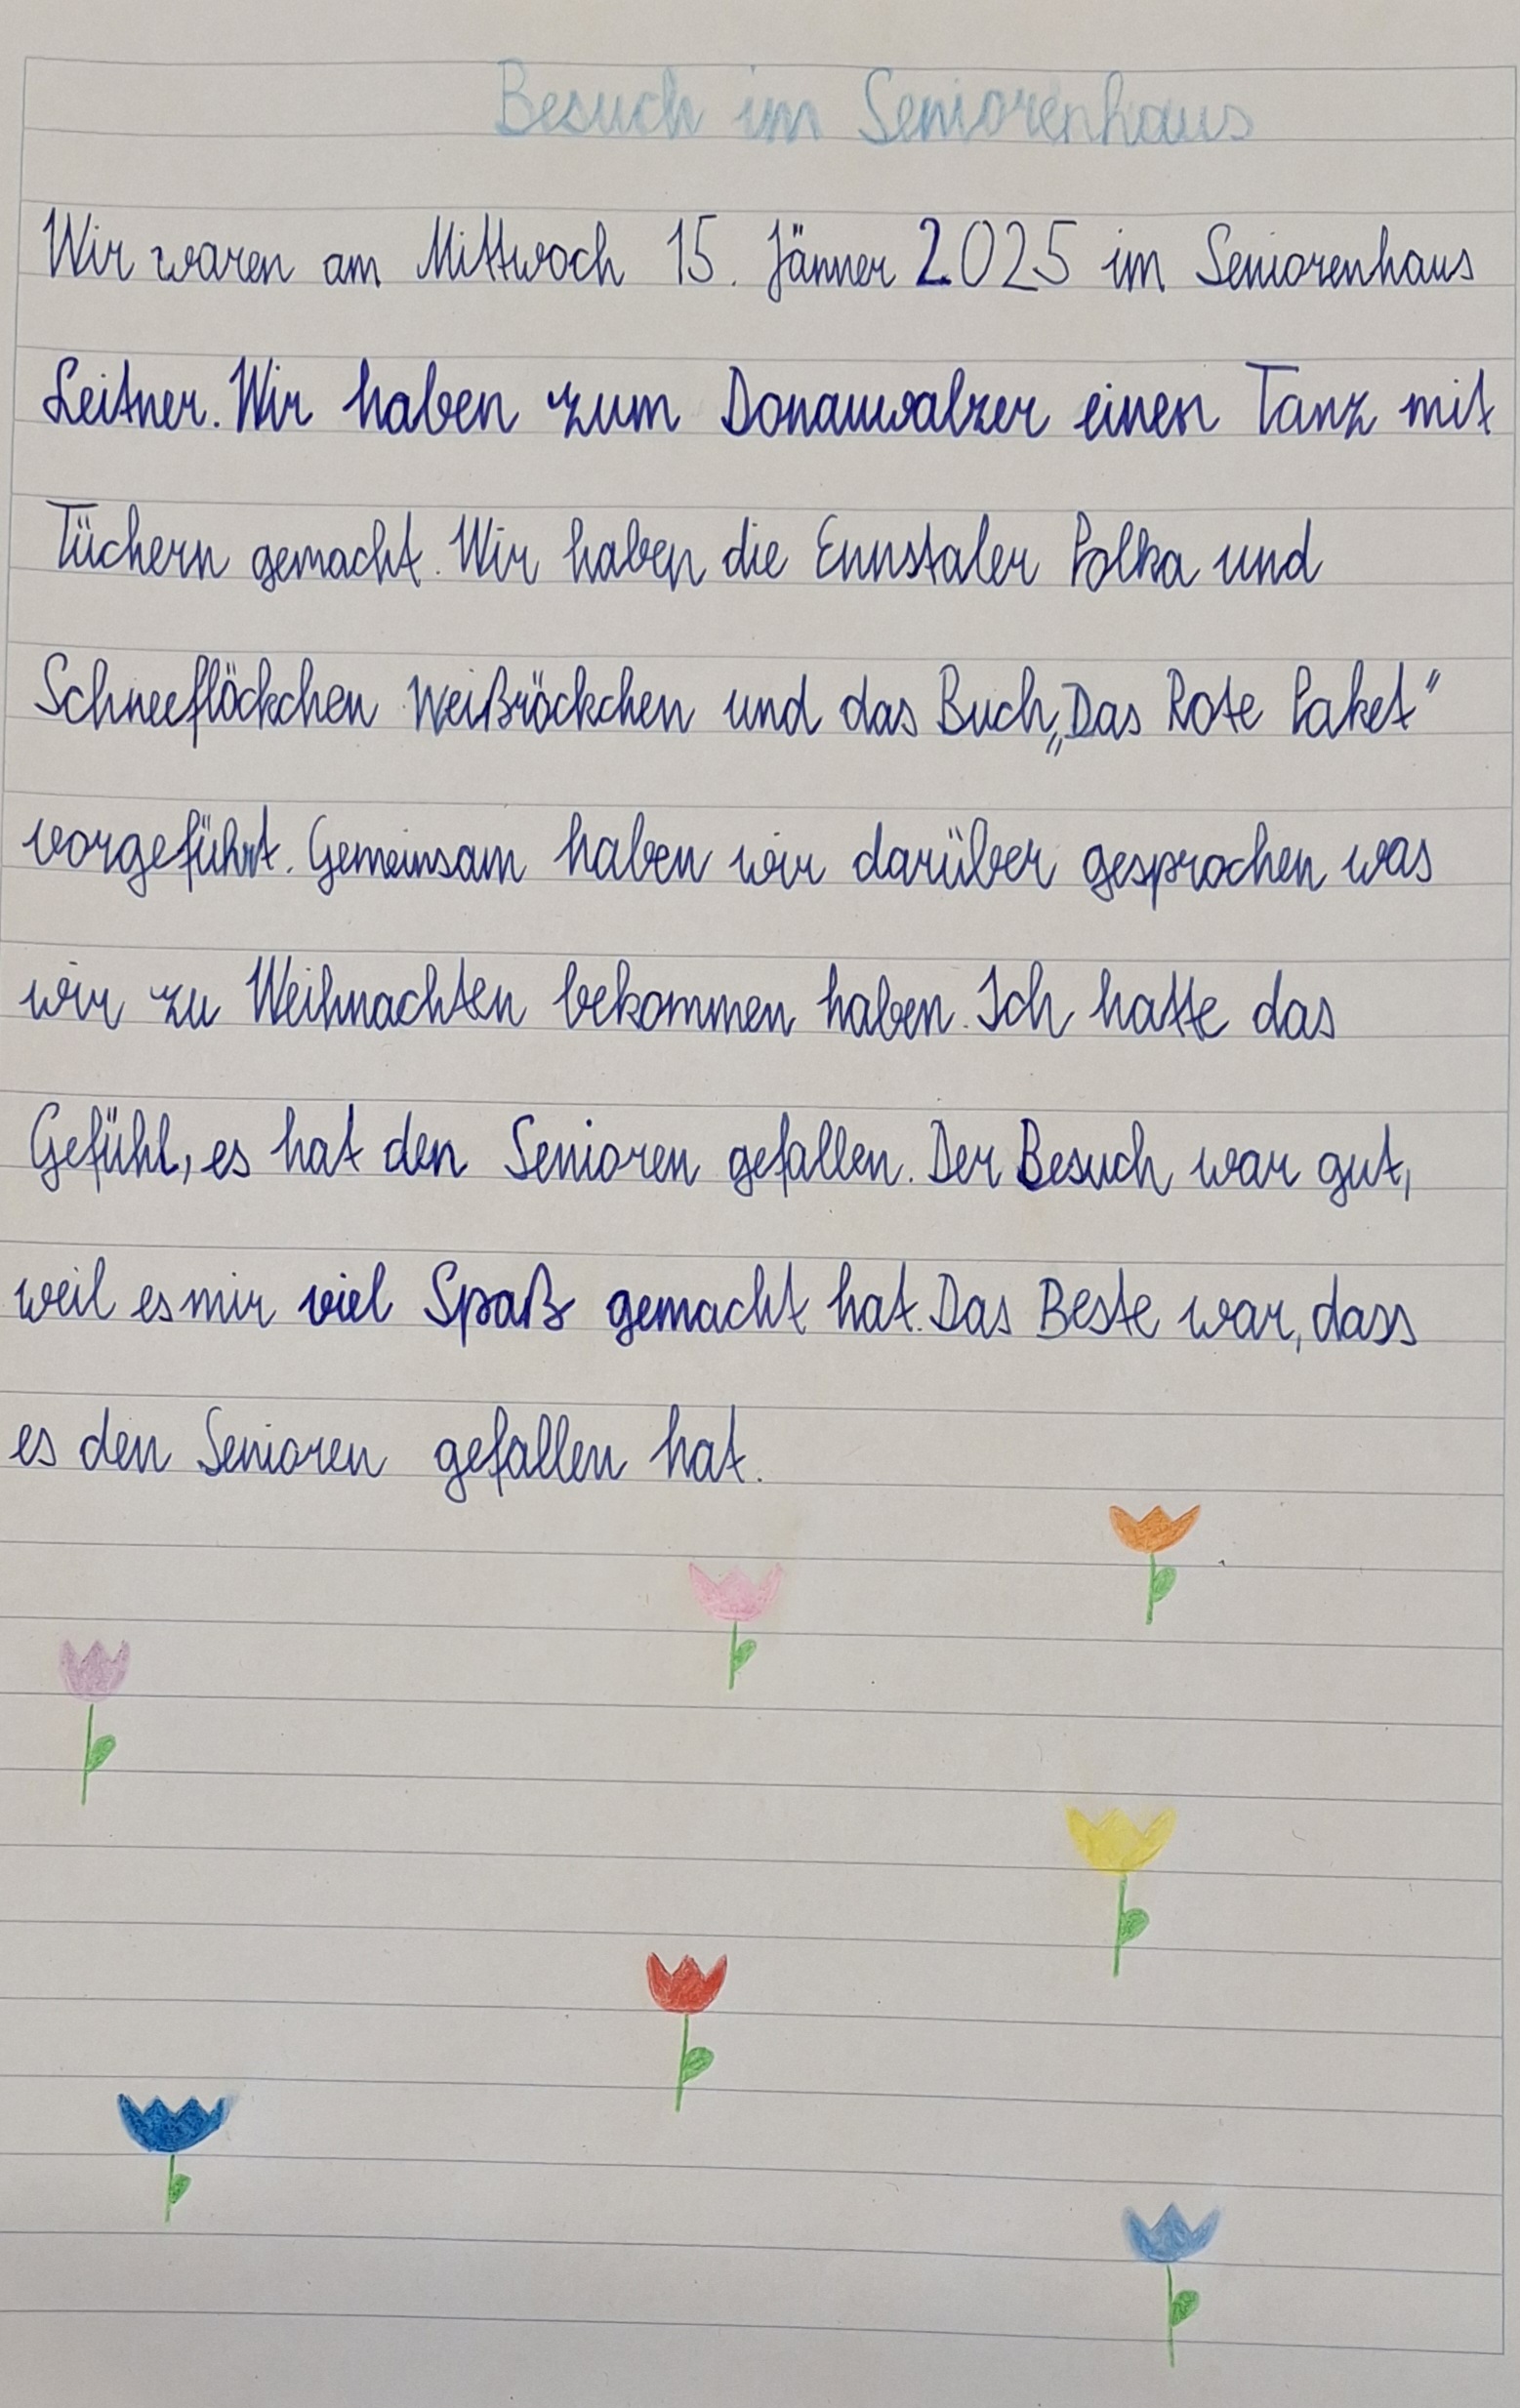 Besuch im Seniorenhaus
Wir waren am Mittwoch 15. Jänner 2025 im Seniorenhaus
Leitner. Wir haben zum Donauwalzer einen Tanz mit
Tüchern gemacht. Wir haben die Ennstaler Polka und
Schneeflöckchen Weißröckchen und das Buch „Das Rote Paket“
vorgeführt. Gemeinsam haben wir darüber gesprochen was
wir zu Weihnachten bekommen haben. Ich hatte das
Gefühl, es hat den Senioren gefallen. Der Besuch war gut,
weil es mir viel Spaß gemacht hat. Das Beste war, dass
es den Senioren gefallen hat.